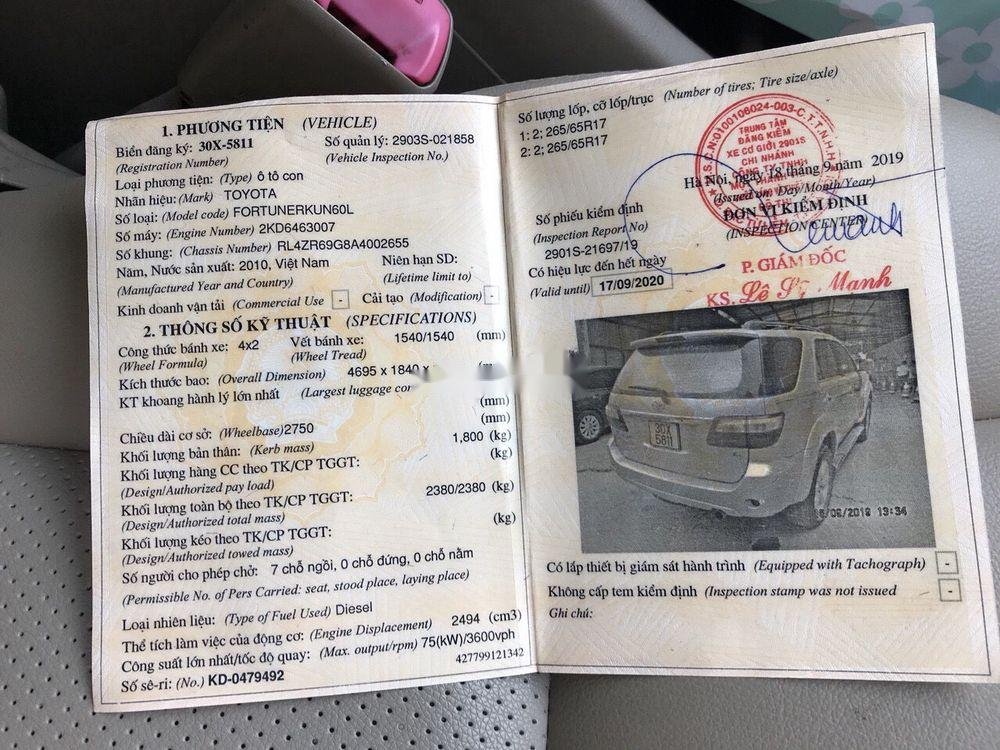 1. PHƯƠNG TIỆN (VEHICLE)
Biển đăng ký: 30X-5811 Số quản lý: 2903S-021858
(Registration Number) (Vehicle Inspection No.)
Loại phương tiện: (Type) Ô tô con
Nhãn hiệu: (Mark) TOYOTA
Số loại: (Model code) FORTUNERKUN60L
Số máy: (Engine Number) 2KD6463007
Số khung: (Chassis Number) RL4ZR69G8A4002655
Năm, Nước sản xuất: 2010, Việt Nam Niên hạn SD:
(Manufactured Year and Country) (Lifetime limit to)
Kinh doanh vận tải (Commercial Use - Cải tạo (Modification) -
2. THÔNG SỐ KỸ THUẬT (SPECIFICATIONS)
Công thức bánh xe: 4x2 Vết bánh xe: 1540/1540 (mm)
(Wheel Formula) (Wheel Tread)
Kích thước bao: (Overall Dimension) 4695 x 1840 x
KT khoang hành lý lớn nhất (Largest luggage con
(mm)
(mm)
Chiều dài cơ sở: (Wheelbase) 2750
Khối lượng bản thân: (Kerb mass) 1,800 (kg)
Khối lượng hàng CC theo TK/CP TGGT: (kg)
(Design/Authorized pay load)
Khối lượng toàn bộ theo TK/CP TGGT: 2380/2380 (kg)
(Design/Authorized total mass)
Khối lượng kéo theo TK/CP TGGT: (kg)
(Design/Authorized towed mass)
Số người cho phép chở: 7 chỗ ngồi, 0 chỗ đứng, 0 chỗ nằm
(Permissible No. of Pers Carried: seat, stood place, laying place)
Loại nhiên liệu: (Type of Fuel Used) Diesel
Thể tích làm việc của động cơ: (Engine Displacement) 2494 (cm3)
Công suất lớn nhất/tốc độ quay: (Max. output/rpm) 75(kW)/3600vph
427799121342
Số sê-ri: (No.) KD-0479492
Số lượng lốp, cỡ lốp/trục (Number of tires; Tire size/axle)
1: 2; 265/65R17
2: 2; 265/65R17
S.C.N:0100106024-003-C.T.T.N.H.H
TRUNG TÂM
ĐĂNG KIỂM
XE CƠ GIỚI 2901S
CHI NHÁNH
CÔNG TY TNHH
Hà Nội, ngày 18 tháng 9 năm 2019
(Issued on: Day/Month/Year)
ĐƠN VỊ KIỂM ĐỊNH
(INSPECTION CENTER)
Số phiếu kiểm định
(Inspection Report No)
2901S-21697/19
Có hiệu lực đến hết ngày
(Valid until) 17/09/2020
P. GIÁM ĐỐC
KS. Lê Sỹ Mạnh
30X
5811
/09/2019 13:34
Có lắp thiết bị giám sát hành trình (Equipped with Tachograph) -
Không cấp tem kiểm định (Inspection stamp was not issued -
Ghi chú: